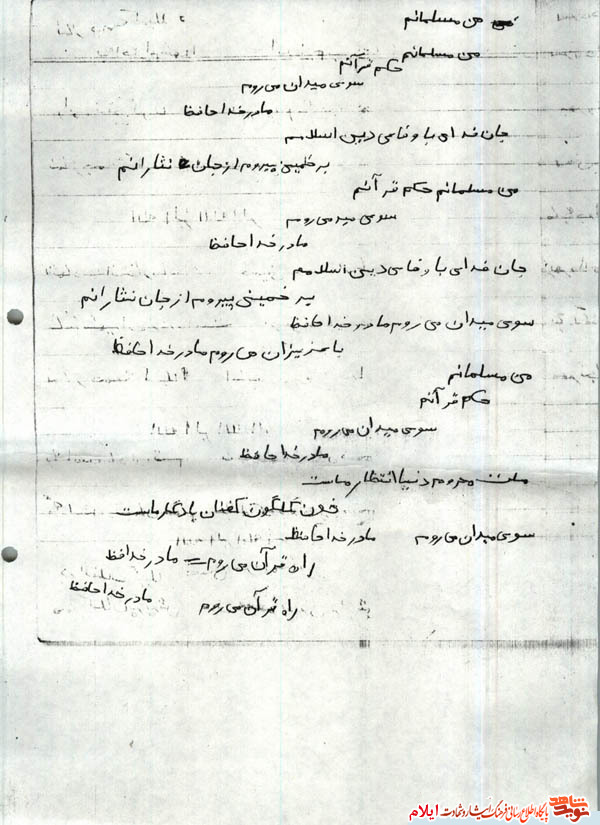 من مسلمانم
من مسلمانم
حکم قرآنم
سوی میدان می روم
مادر خداحافظ
جان فدای با وفای دین اسلامم
بر خمینی پیروم از جان نثارانم
من مسلمانم حکم قرآنم
سوی مید می روم
مادر خداحافظ
جان فدای با وفای دین اسلامم
بر خمینی پیروم از جان نثارانم
سوی میدان می روم مادر خداحافظ
با عزیزان می روم مادر خداحافظ
من مسلمانم
حکم قرآنم
سوی میدان می روم
مادر خداحافظ
ملت محروم دنیا انتظار ماست
خون گلگون کفنان یادگار ماست
سوی میدان می روم مادر خداحافظ
راه قرآن می روم مادر خدافظ
راه قرآن می روم مادر خداحافظ
نوید شاهد پایگاه اطلاع رسانی فرهنگ ایثار و شهادت ایلام